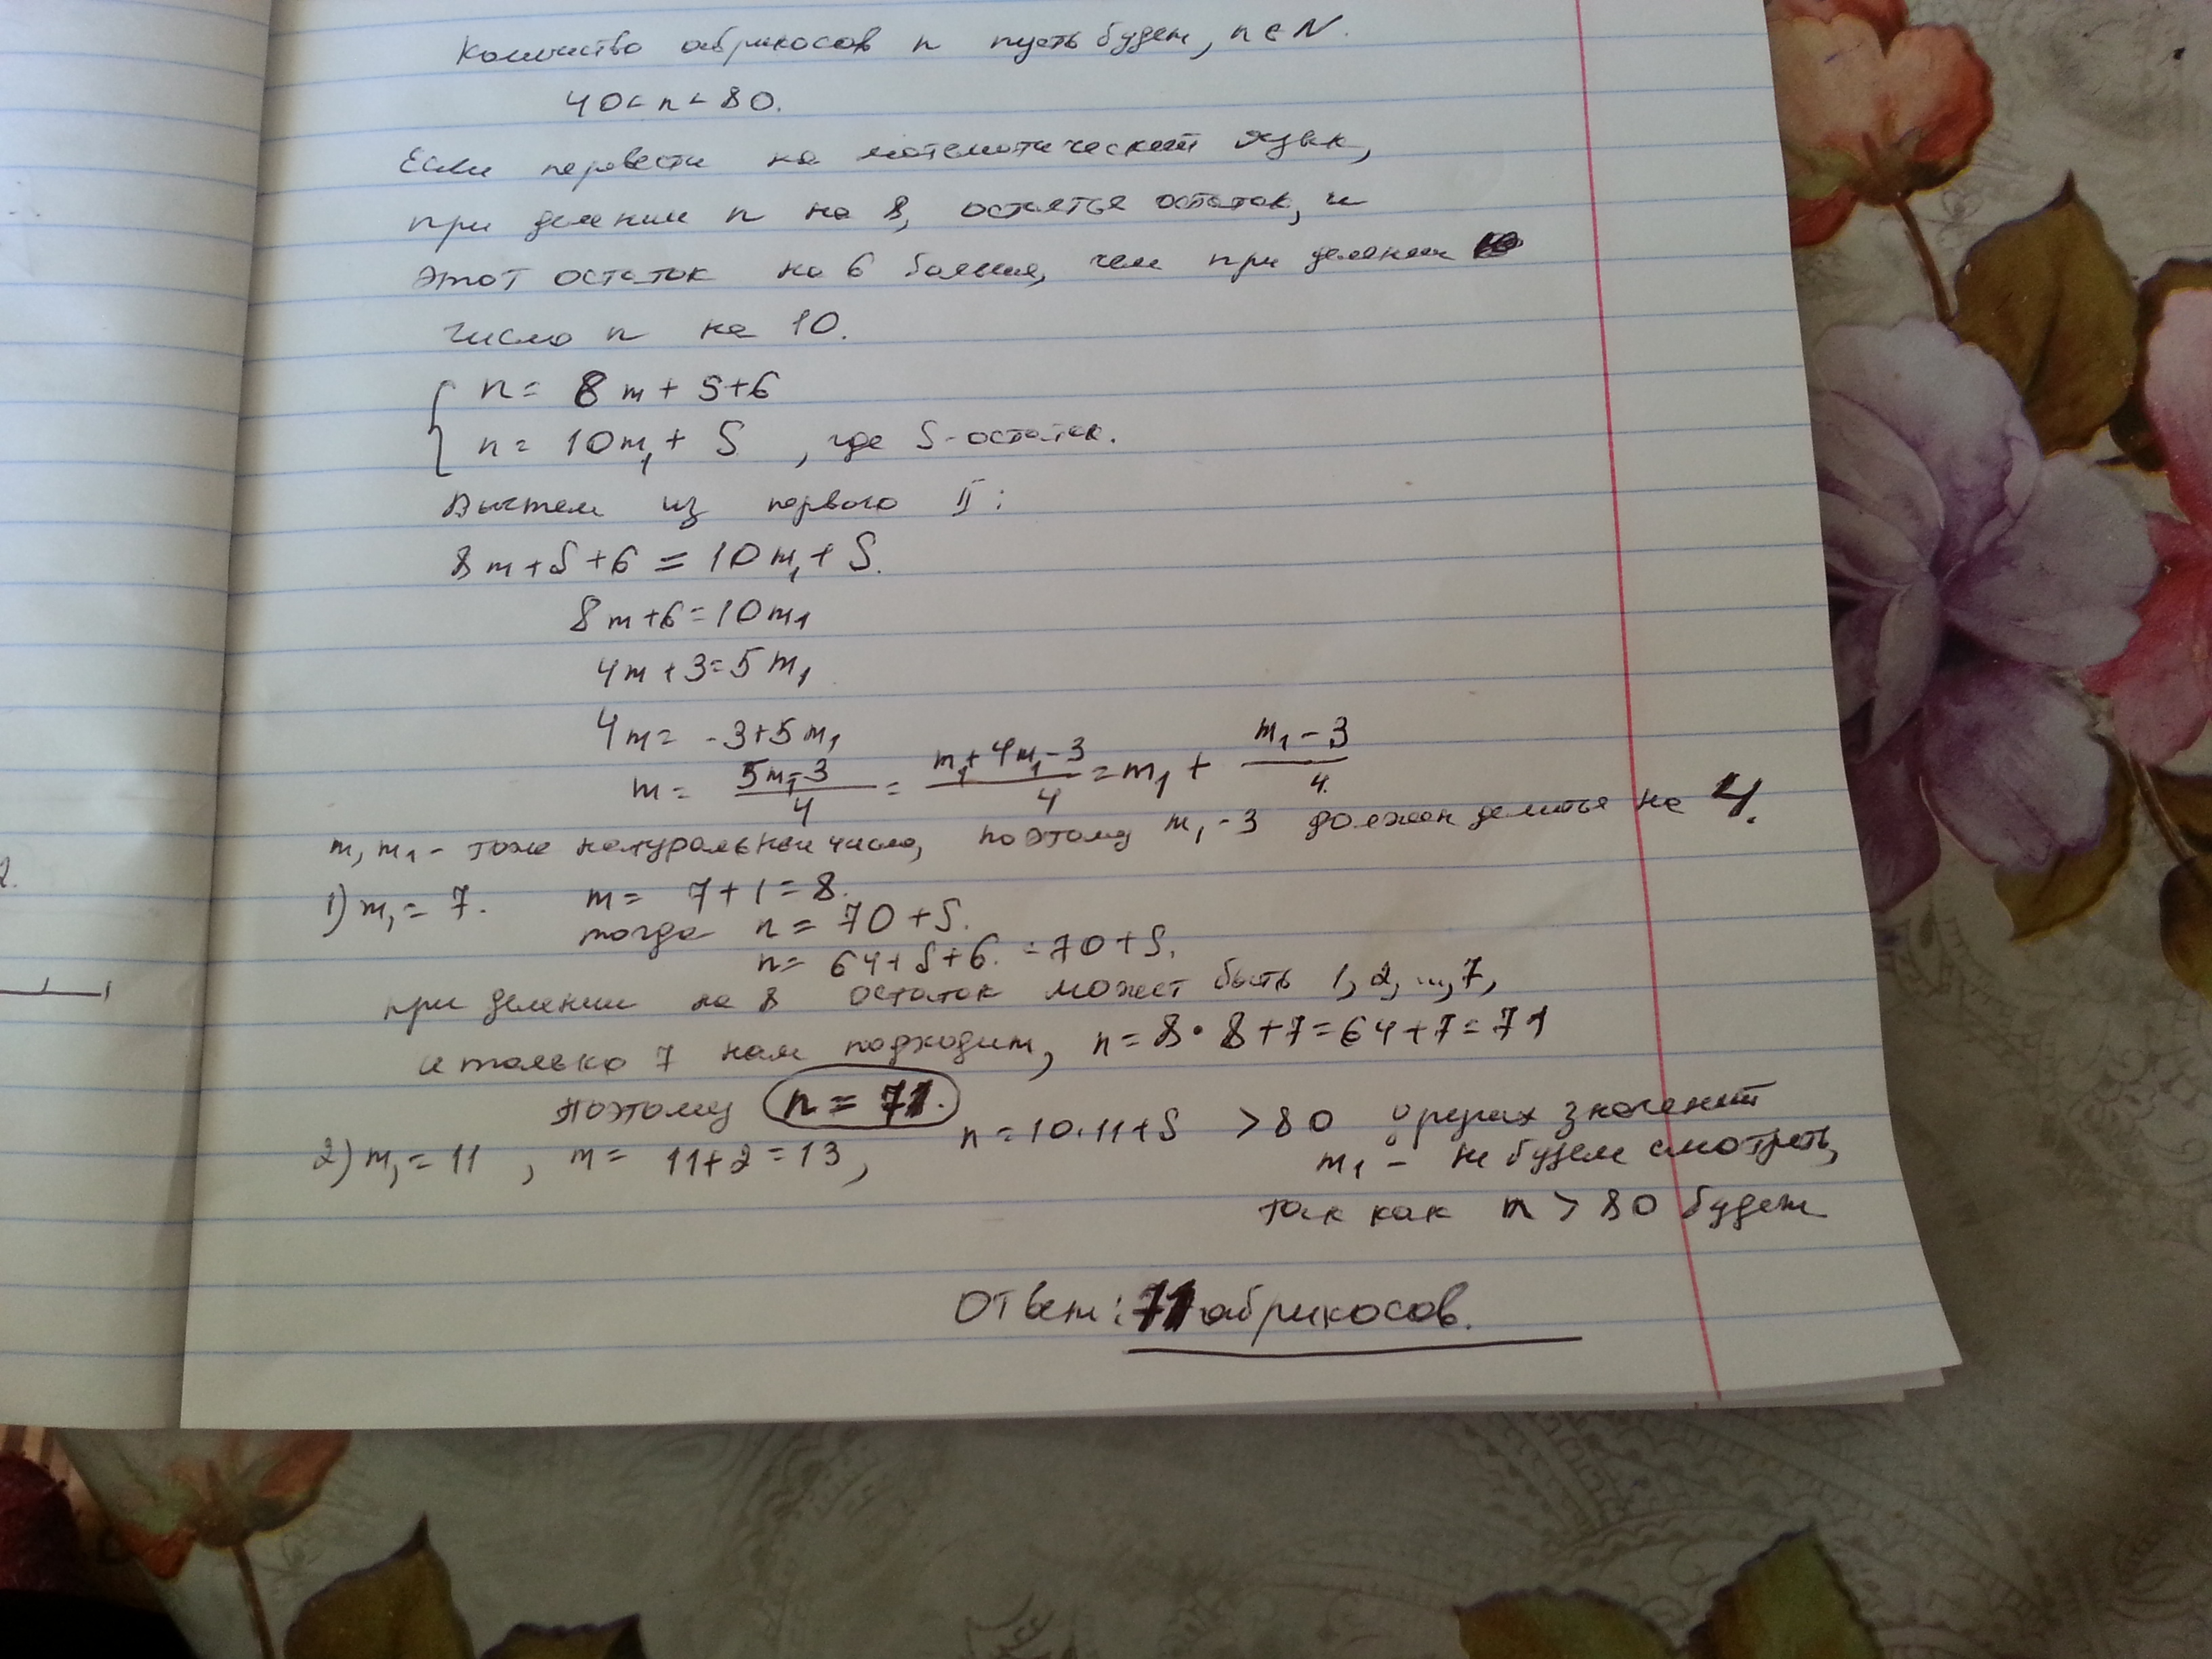 Количество абрикосов n пусть будет, n ∈ N.
40 < n < 80.
Если перевести на математический язык,
при делении n на 8, остаться остаток, и
этот остаток на 6 больше, чем при делении
число n на 10.
{ n = 8m + S + 6
n = 10m₁ + S , где S - остаток.
Вычтем из первого II:
8m + S + 6 = 10m₁ + S.
8m + 6 = 10m₁
4m + 3 = 5m₁
4m = -3 + 5m₁
m = (5m₁ - 3)/4 = (m₁ + 4m₁ - 3)/4 = m₁ + (m₁ - 3)/4.
m, m₁ - тоже натуральные число, поэтому m₁ - 3 должен делиться на 4.
1) m₁ = 7. m = 7 + 1 = 8.
тогда n = 70 + S.
n = 64 + S + 6. = 70 + S.
при делении на 8 остаток может быть 1, 2, ..., 7,
и только 7 нам подходит, n = 8 · 8 + 7 = 64 + 7 = 71
Поэтому n = 71.
2) m₁ = 11 , m = 11 + 2 = 13, n = 10 · 11 + S > 80 других значений
m₁ - не будем смотреть,
так как n > 80 будет
Ответ: 71 абрикосов.
2.